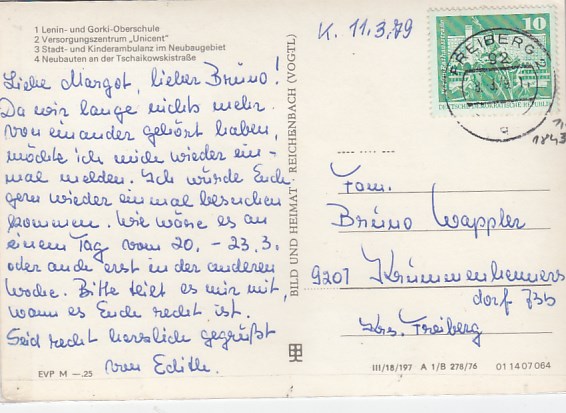 1 Lenin- und Gorki-Oberschule
2 Versorgungszentrum „Unicent“
3 Stadt- und Kinderambulanz im Neubaugebiet
4 Neubauten an der Tschaikowskistraße
Liebe Margot, lieber Bruno!
Da wir lange nichts mehr
voneinander gehört haben,
möchte ich mich wieder ein-
mal melden. Ich würde Euch
gern wieder einmal besuchen
kommen. Wie wäre es an
einem Tag vom 20. – 23.3.
oder auch erst in der anderen
Woche. Bitte teilt es mir mit,
wann es Euch recht ist.
Seid recht herzlich gegrüßt
von Edith.
EVP M —.25
BILD UND HEIMAT · REICHENBACH (VOGTL)
K. 11.3.79
10
DEUTSCHE DEMOKRATISCHE REPUBLIK
FREIBERG 2
92
a
1843
Fam.
Bruno Wappler
9201 Krummenhenners
dorf Zbs
Krs. Freiberg
III/18/197 A 1/B 278/76 01 14 07 064